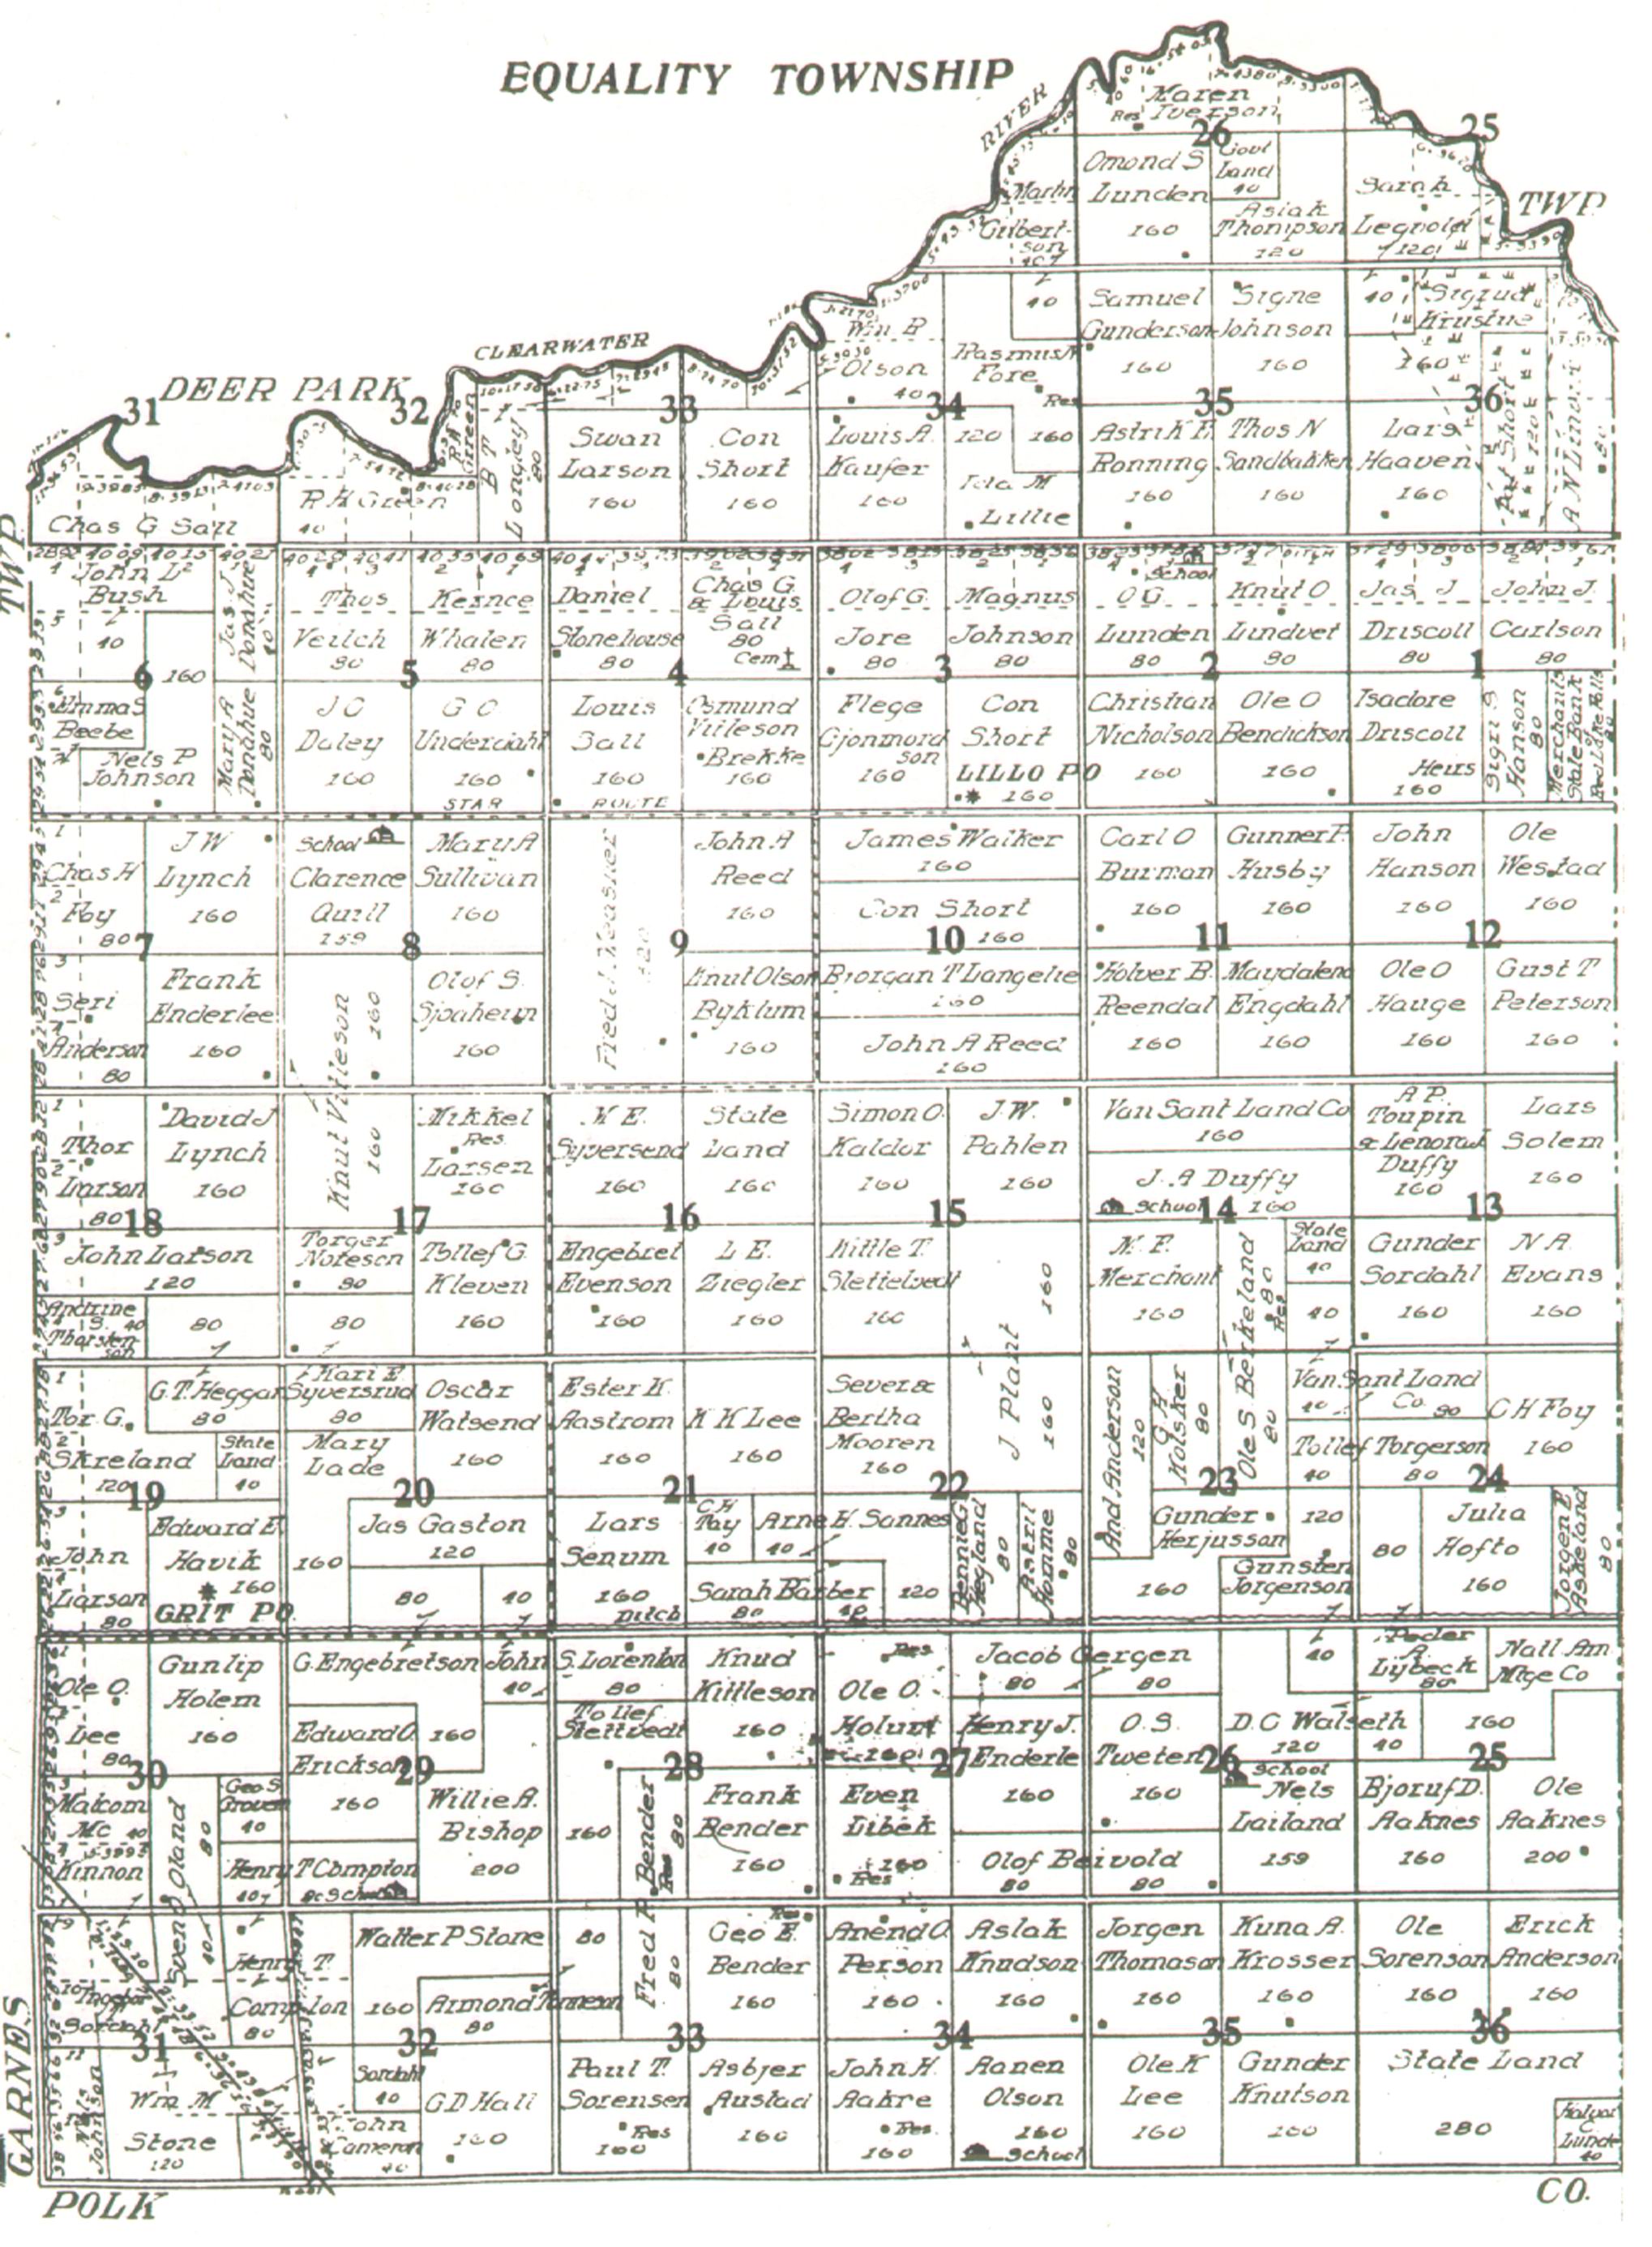 EQUALITY TOWNSHIP
RIVER
Maren
Res Iverson
26
25
Omond S
Lunden
160
Govt
Land
40
Aslak
Thompson
120
Martin
Gilbert-
son
Sarah
Legvold
120
TWP.
CLEARWATER
DEER PARK
31
32
33
34
35
36
Wm B
Olson
40
Rasmus
Fore
Res
40
Samuel
Gunderson
160
Signe
Johnson
160
40
160
R H
Green
B T
Longley
80
Swan
Larson
160
Con
Short
160
Louis A.
Kaufer
160
120
160
Ida M
Lillie
Astri K E
Ronning
160
Thos N
Sandbakken
160
Lars
Haaven
160
Pat Short
120
80
Chas G Sall
R H Green
40
TWP.
John L
Bush
40
160
Jas J
Donahue
40
Thos
Veitch
80
Kernce
Whalen
80
Daniel
Stonehouse
80
Chas G
& Louis
Sall
80
Cem
Olof G.
Jore
80
Magnus
Johnson
80
School
O G
Lunden
80
Knut O
Lindvet
80
Jas J
Driscoll
80
John J.
Carlson
80
6
5
4
3
2
1
Emma S
Beebe
Nels P
Johnson
Mary A
Donahue
80
J C
Daley
160
G O
Underdahl
160
STAR ROUTE
Louis
Sall
160
Osmund
Vitleson
Brekke
160
Flege
Gjonmord
son
160
Con
Short
LILLO PO
160
Christian
Nicholson
160
Ole O
Bendickson
160
Isadore
Driscoll
Heirs
160
Sigri S
Hanson
80
Merchants
State Bank
of
Red Lake Falls
80
Chas H
Foy
80
J W
Lynch
160
School
Clarence
Quill
159
Mary A
Sullivan
160
Fred J. Keasher
320
John A
Reed
160
James Walker
160
Con Short
160
Carl O
Burman
160
Gunner P.
Husby
160
John
Hanson
160
Ole
Westad
160
7
8
9
10
11
12
Seri
Anderson
80
Frank
Enderlee
160
Knut Vitleson
160
160
Olof S.
Sjoaheim
160
Knut Olson
Byklum
160
Biorgan T Langelie
160
John A Reed
160
Holver B.
Reendal
160
Magdalena
Engdahl
160
Ole O
Hauge
160
Gust T
Peterson
160
Thor
Larson
80
David J
Lynch
160
Mikkel
Res.
Larsen
160
M E.
Syversend
160
State
Land
160
Simon O.
Kaldor
160
J.W.
Pahlen
160
Van Sant Land Co
160
J. A Duffy
School
160
A P.
Toupin
& Lenora J
Duffy
160
Lars
Solem
160
18
17
16
15
14
13
John Larson
120
Andrine
S. 40
Thorsten
son
80
Torger
Noteson
80
80
Tollef G.
Kleven
160
Engebret
Evenson
160
L E.
Ziegler
160
Kittle T.
Slettelvedt
160
J Plant
160
160
M. F.
Merchant
160
Ole S. Berkeland
80
Res
80
State
Land
40
40
Gunder
Sordahl
160
N A.
Evans
160
Tor G.
Skreland
120
G.T. Heggar
80
State
Land
40
Kari E
Syversrud
80
Mary
Lade
160
Oscar
Walsend
160
Ester K
Aastrom
160
K K Lee
160
Sever &
Bertha
Mooren
160
And Anderson
120
G H
Kolsker
80
Van Sant Land
Co.
40
80
Tollef Torgerson
40
80
C H Foy
160
19
20
21
22
23
24
John
Larson
80
Edward E
Havik
160
GRIT PO
Jas Gaston
120
80
40
Lars
Senum
160
Ditch
C H
Tay
40
Arne H. Sannes
40
120
Sarah Barber
80
40
Bennie G
Hegland
80
Astril
Homme
80
Gunder
Herjusson
160
120
Gunsten
Jorgenson
80
Julia
Hofto
160
Jorgen E
Askeland
80
Ole O.
Lee
80
Gunlip
Holem
160
G. Engebretson
160
John
40
S. Lorenton
80
Tollef
Slettvedt
160
Knud
Kittleson
160
Res
Ole O.
Holunt
160
Jacob Gergen
80
80
Henry J.
Enderle
160
O. S.
Tweten
160
40
D. C Walseth
120
40
Peder
A
Lybeck
80
Natl Am
Mtge Co
160
30
29
28
27
26
25
Malcom
Mc 40
Kinnon
Swend Oland
80
40
Geo S
Grover
40
Henry T Compton
40
School
Edward O.
Erickson
160
Willie A.
Bishop
200
Fred P. Bender
80
Res
80
Frank
Bender
160
Even
Libek
160
Res
Olof Beivold
80
80
School
Nels
Lailand
159
Bjoruf D.
Aaknes
160
Ole
Aaknes
200
Henry T.
Compton
80
Walter P Stone
160
Armond Tonneson
80
80
Res
Geo E.
Bender
160
Anend O.
Person
160
Aslak
Knudson
160
Jorgen
Thomason
160
Kuna A.
Krosser
160
Ole
Sorenson
160
Erick
Anderson
160
31
32
33
34
35
36
Sordahl
Nels
Johnson
Wm M
Stone
120
Sordahl
40
John
Cameron
40
G D Hall
160
Paul T.
Sorensen
Res
160
Asbjer
Austad
160
John H.
Aakre
Res.
160
Aanen
Olson
160
School
Ole K
Lee
160
Gunder
Knutson
160
State Land
280
Halvor
C
Lunde
40
GARNES
POLK
CO.